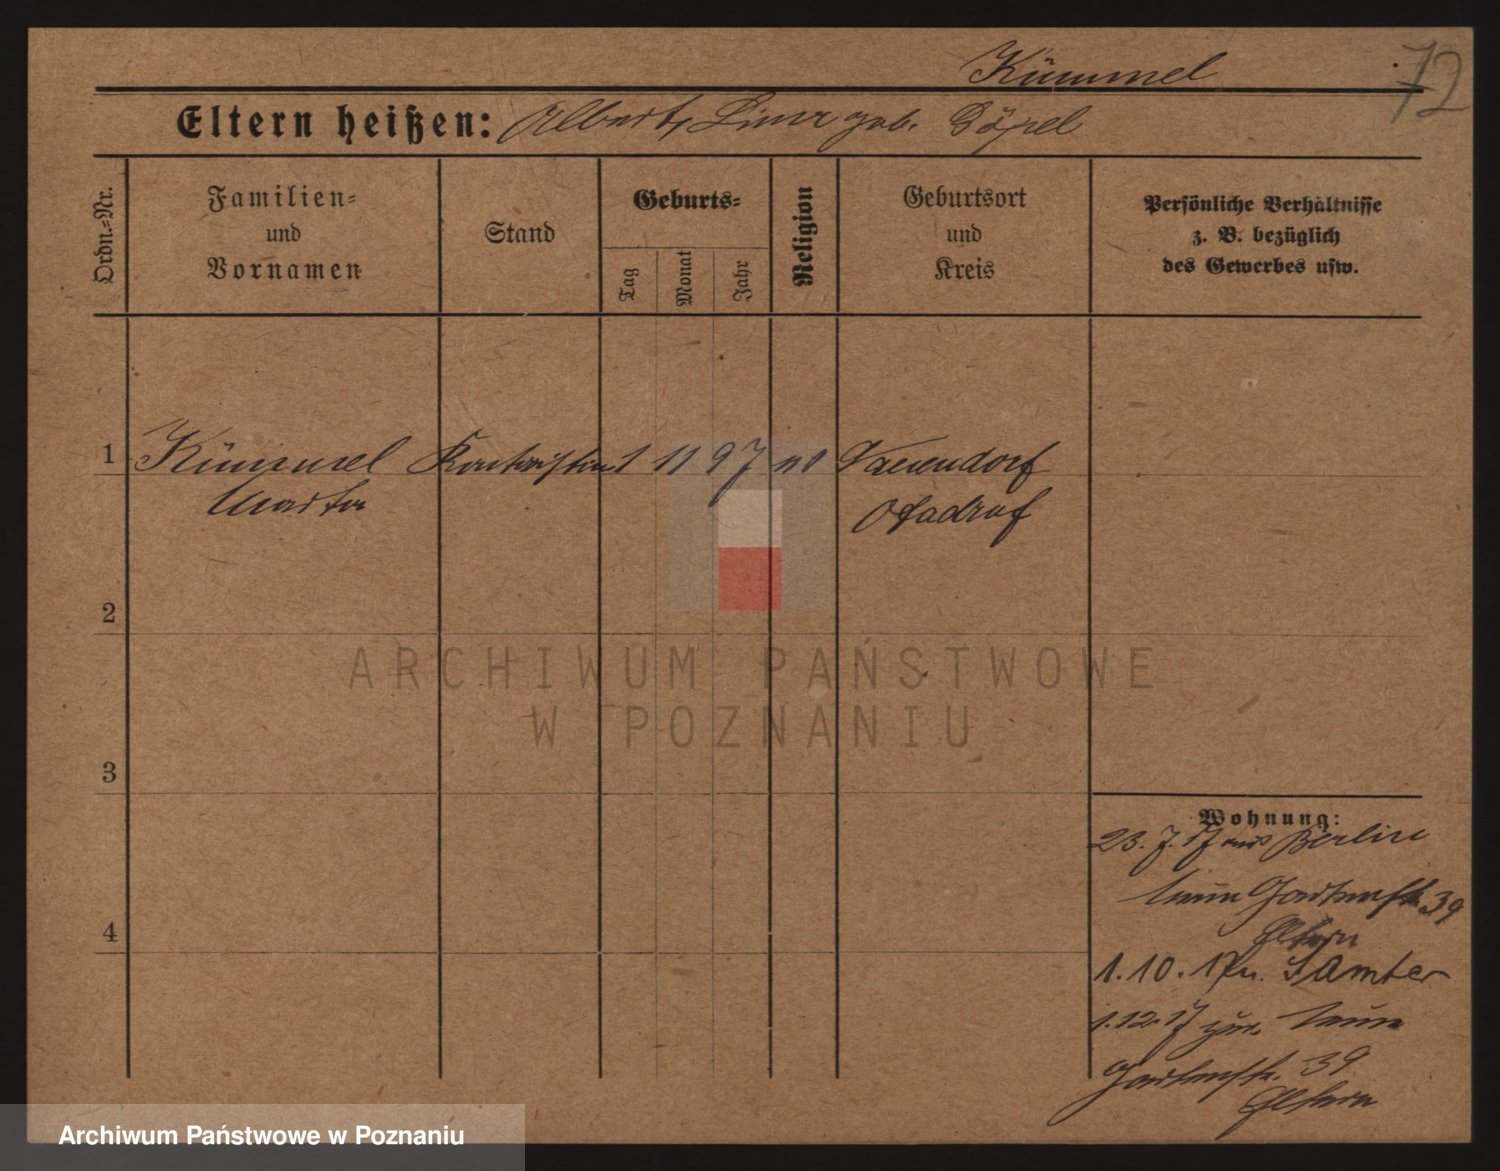 Kümmel
72
Eltern heißen: Albert, Lina geb. Döpel
Ordn.=Nr.
Familien=
und
Vornamen
Stand
Geburts=
Tag
Monat
Jahr
Religion
Geburtsort
und
Kreis
Persönliche Verhältnisse
z. B. bezüglich
des Gewerbes usw.
1 Kümmel Kontoristin 1 11 97 Tauendorf
Martha
2
3
4
Wohnung:
23. 7. 17 aus Berlin
Gartenstr. 39
Eltern
1. 10. 17 n. Samter
1. 12. 17 zur.
Gartenstr. 39
Eltern
ARCHIWUM PAŃSTWOWE
W POZNANIU
Archiwum Państwowe w Poznaniu